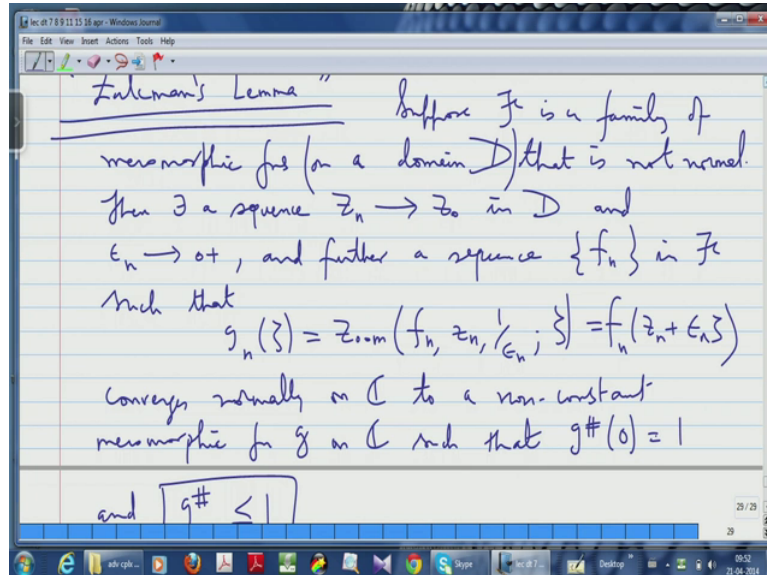 lec dt 7 8 9 11 15 16 apr - Windows Journal
File Edit View Insert Actions Tools Help
"Zalcman's Lemma" Suppose ℱ is a family of
meromorphic fns (on a domain D) that is not normal.
Then ∃ a sequence Zₙ → Z₀ in D and
εₙ → 0+, and further a sequence {fₙ} in ℱ
such that
gₙ(ζ) = Zoom(fₙ, zₙ, 1/εₙ; ζ) = fₙ(zₙ + εₙζ)
converges normally on ℂ to a non-constant
meromorphic fn g on ℂ such that g#(0) = 1
and g# ≤ 1
29 / 29
29
adv cplx ... Skype lec dt 7 ... Desktop 09:52
21-04-2014